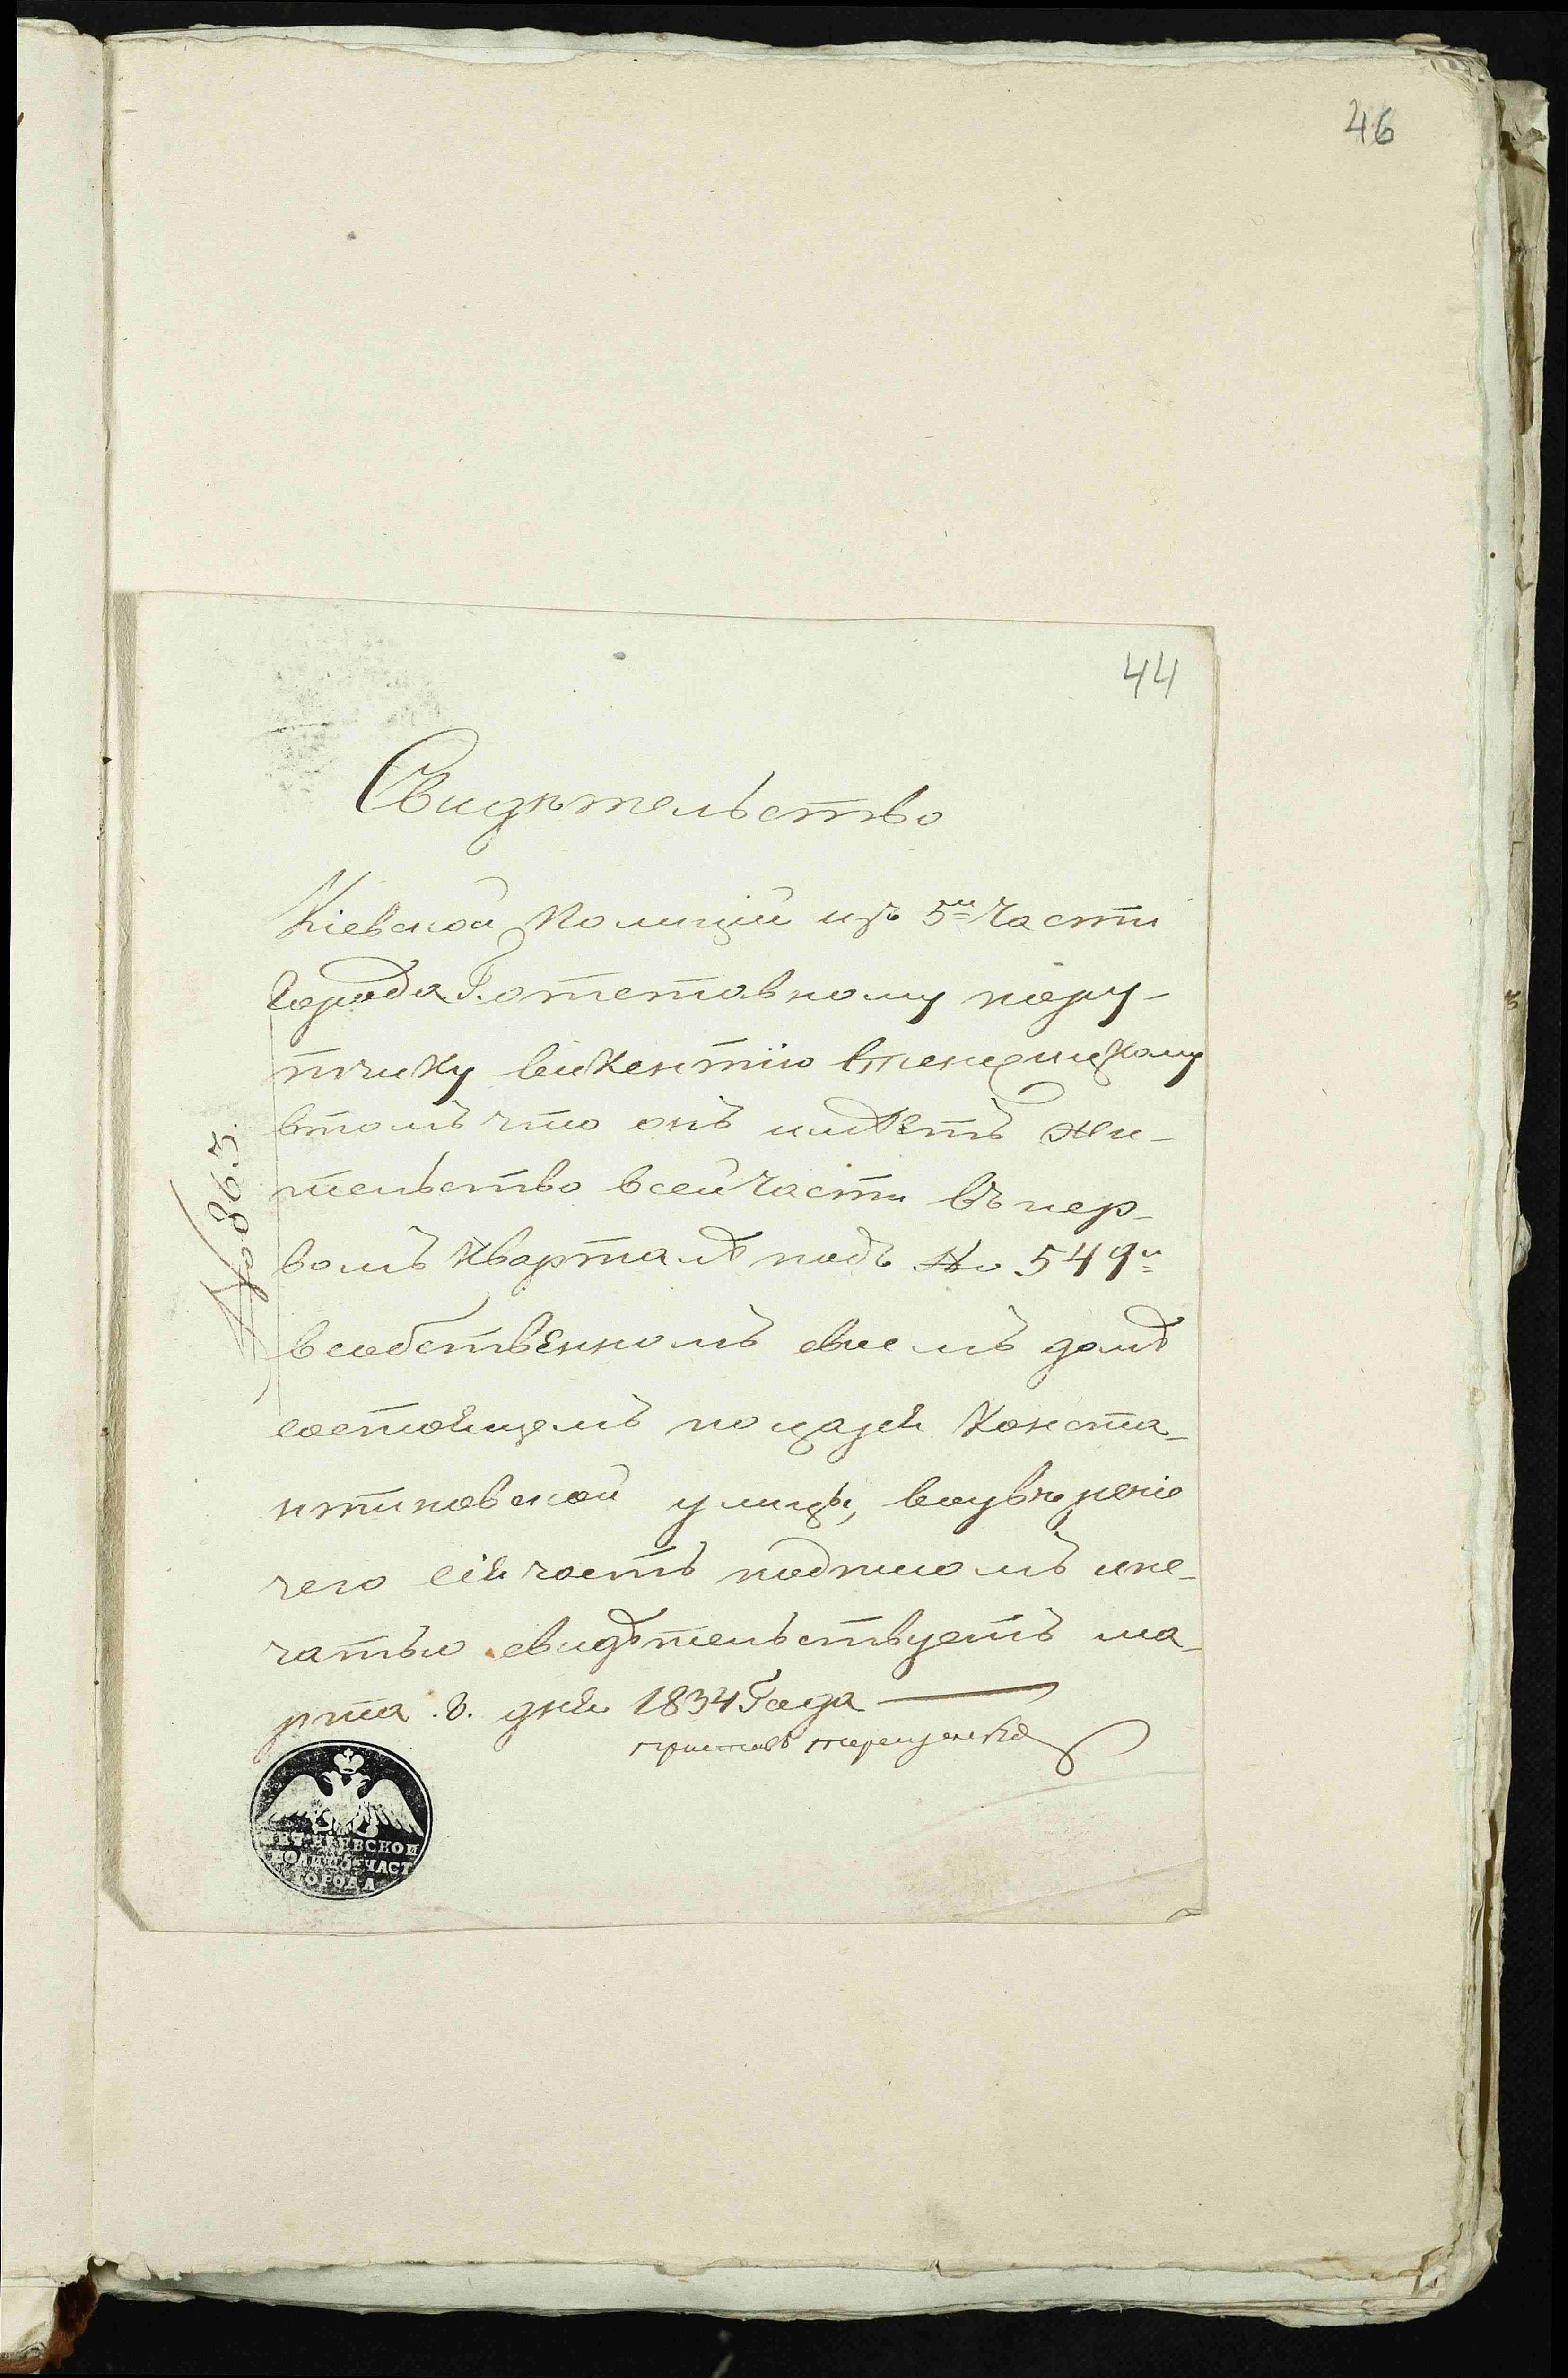 46
44
Свидѣтельство
Кіевской Полиціи изъ 5й Части
Города Г. отставному пору-
тчику викентію
втомъ что онъ имѣетъ жи-
тельство всей Части въ пер-
вомъ Кварталѣ подъ № 549м
всобственномъ своемъ домѣ
состоящемъ позадѣ Конста-
нтиновской улицы,
чего сія часть подписомъ ипе-
чатью свидѣтельствуетъ ма-
рта 8. дня 1834 Года
приставъ
№ 863.
КІЕВСКОЙ
ПОЛИЦІ 5й ЧАСТ
ГОРОДА